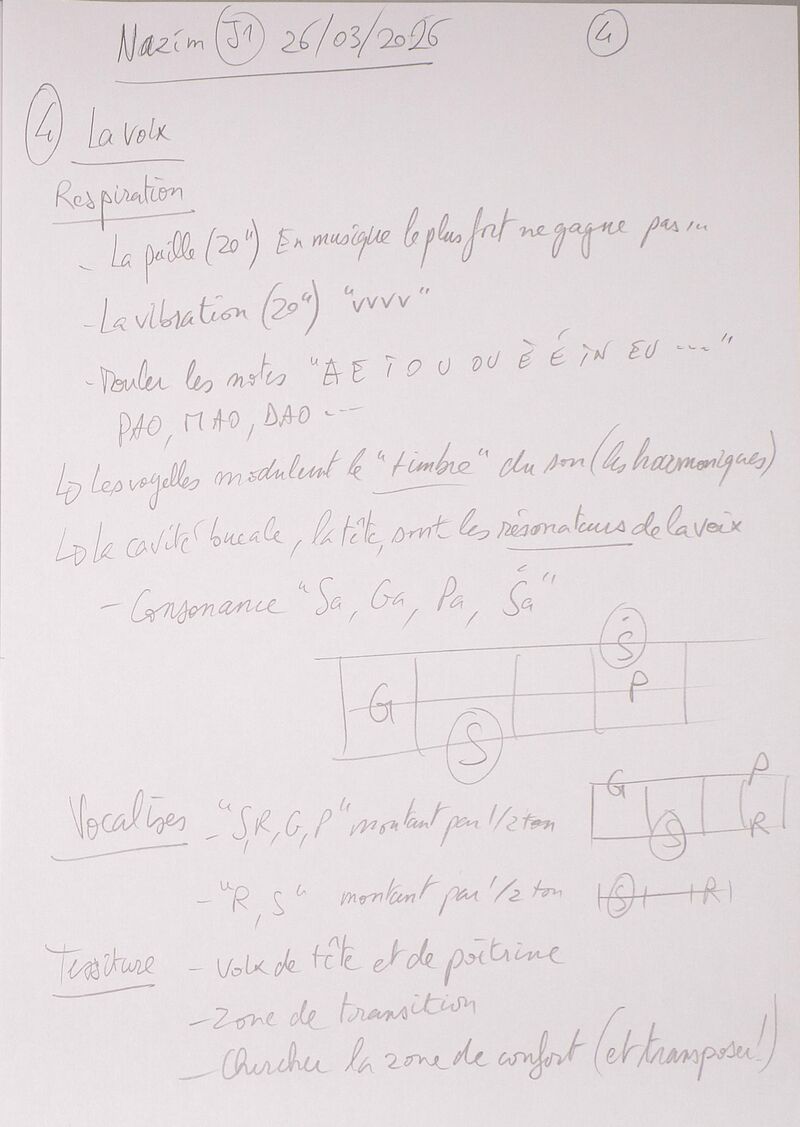 Nazim J1 26/03/2026 4
4 La voix
Respiration
- La paille (20") En musique le plus fort ne gagne pas...
- La vibration (20") "vvvv"
- Rouler les notes "A E I O U OU È É IN EU ---"
PAO, MAO, DAO ---
↳ Les voyelles modulent le "timbre" du son (les harmoniques)
↳ la cavité bucale, la tête, sont les résonateurs de la voix
- Consonance "Sa, Ga, Pa, Ṡa"
Ṡ
G P
S
Vocalises - "S,R,G,P" montant par 1/2 ton
G P
S R
- "R, S" montant par 1/2 ton
S R
Tessiture - Voix de tête et de poîtrine
- Zone de transition
- Chercher la zone de confort (et transposer!)